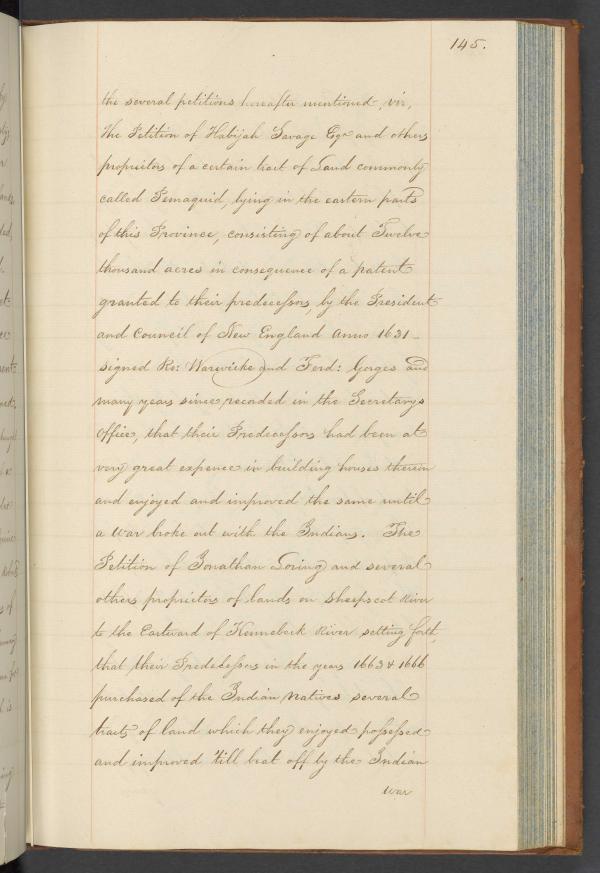 145.
the several petitions hereafter mentioned, viz,
The Petition of Habijah Savage Esqr and others
proprietors of a certain tract of Land commonly
called Pemaquid, lying in the eastern parts
of this Province, consisting of about Twelve
thousand acres in consequence of a patent
granted to their predecessors, by the President
and Council of New England Anno 1631 _
signed Ro: Warwicke and Ferd: Gorges and
many years since, recorded in the Secretarys
Office, that their Predecessors had been at
very great expence in building houses thereon
and enjoyed and improved the same until
a War broke out with the Indians. The
Petition of Jonathan Loring and several
others proprietors of lands on Sheepscot River
to the Eastward of Kennebeck River setting forth,
that their Predecessors in the years 1663 & 1666
purchased of the Indian Natives several
tracts of land which they enjoyed possessed
and improved 'till beat off by the Indian
war